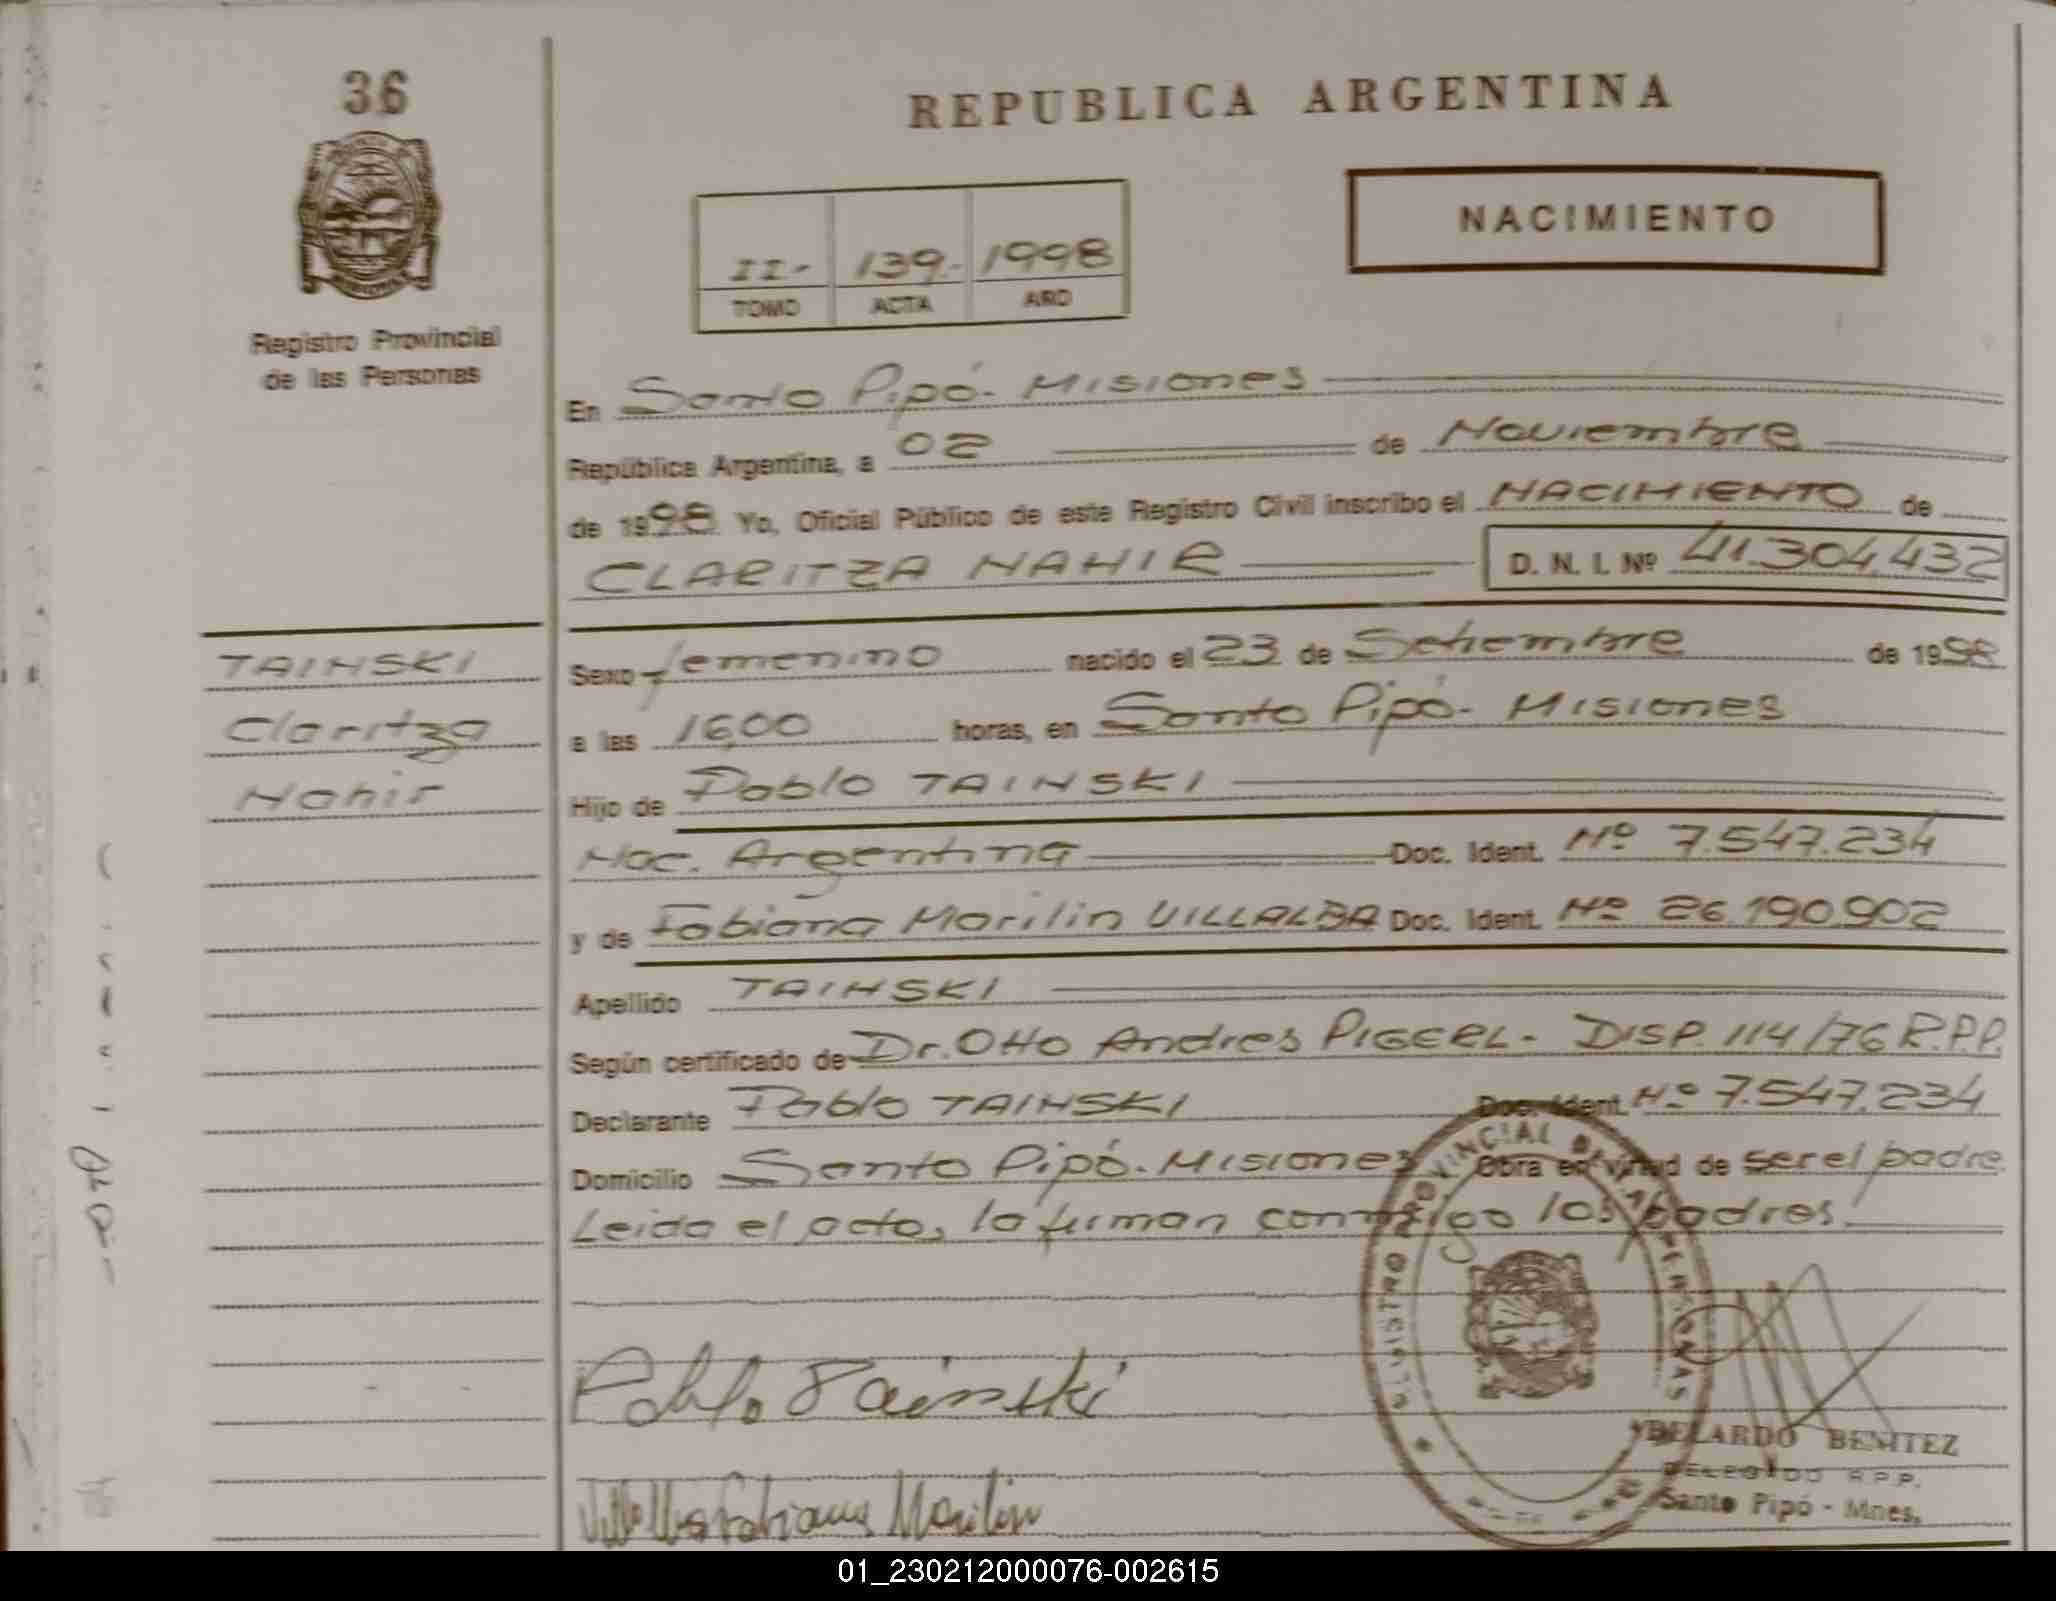 36
REPUBLICA ARGENTINA
NACIMIENTO
II- 139.- 1998
TOMO ACTA AÑO
Registro Provincial
de las Personas
En Santo Pipó- Misiones
República Argentina, a 02 de Noviembre
de 1998 Yo, Oficial Público de este Registro Civil inscribo el NACIMIENTO de
CLARITZA NAHIR D. N. I. Nº 41.304.432
TAINSKI
Claritza
Nahir
Sexo femenino nacido el 23 de Setiembre de 1998
a las 16,00 horas, en Santo Pipó- Misiones
Hijo de Pablo TAINSKI
Nac. Argentina Doc. Ident. Nº 7.547.234
y de Fabiana Marilin VILLALBA Doc. Ident. Nº 26.190.902
Apellido TAINSKI
Según certificado de Dr. Otto Andres PIGERL- DISP. 114/76 R.P.P.
Declarante Pablo TAINSKI Doc. Ident. Nº 7.547.234
Domicilio Santo Pipó- Misiones Obra en virtud de ser el padre
Leida el acta, la firman conmigo los padres.
Pablo Tainski
Villalba Fabiana Marilin
REGISTRO PROVINCIAL DE LAS PERSONAS
ABELARDO BENITEZ
DELEGADO R.P.P.
Santo Pipó - Mnes.
01_230212000076-002615